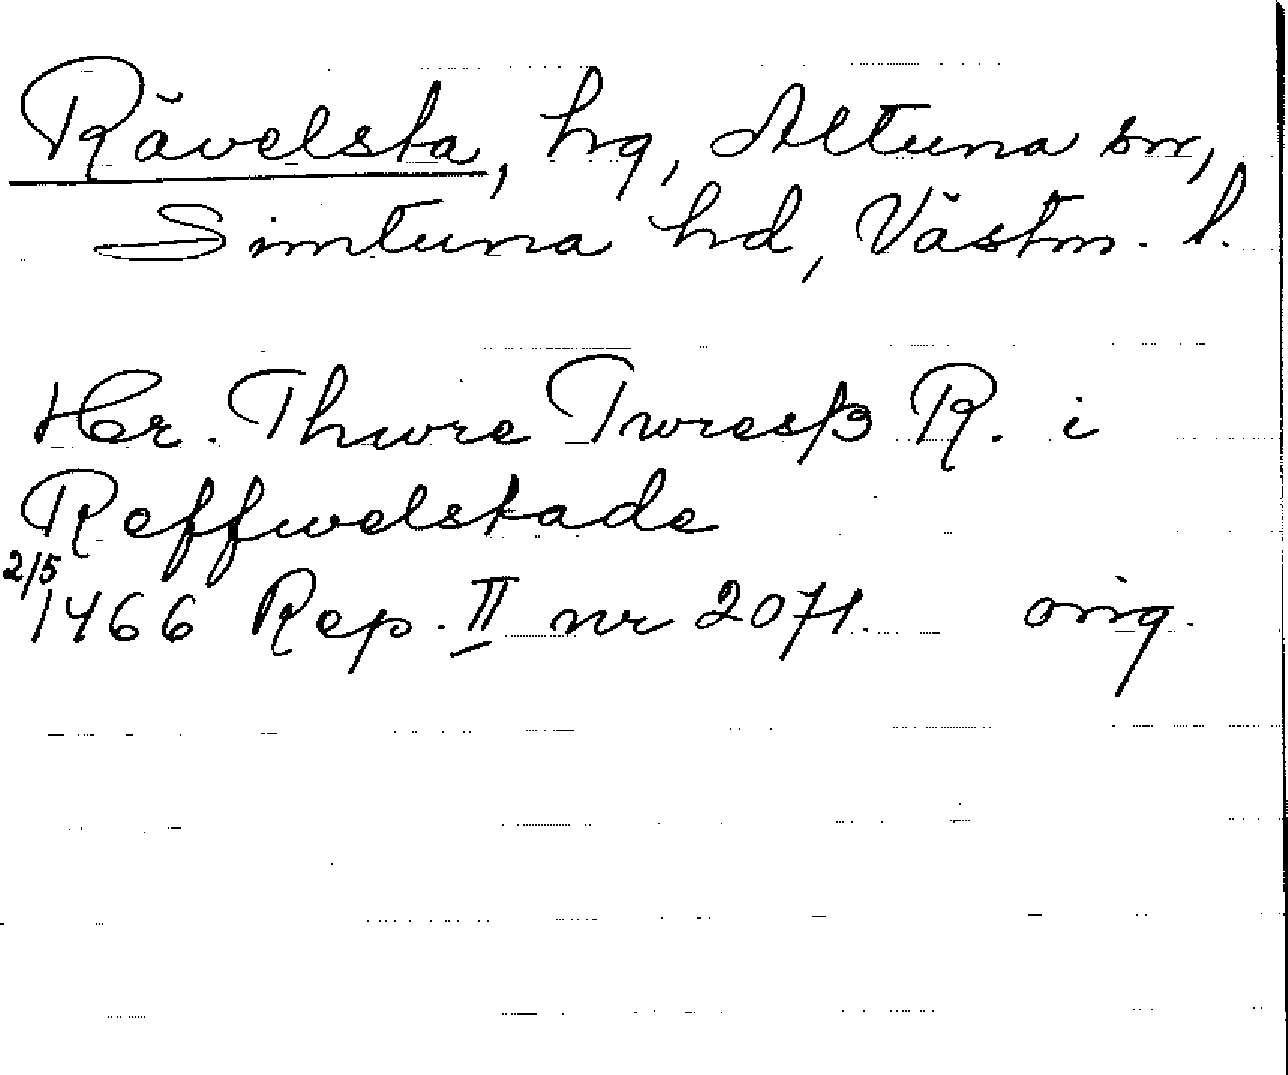 Rävelsta, hg, Altuna sn,
Simtuna hd, Västm. l.
Her. Thure Twresß R. i
Reffwelstade
2/5
1466 Rep. II nr 2071. orig.